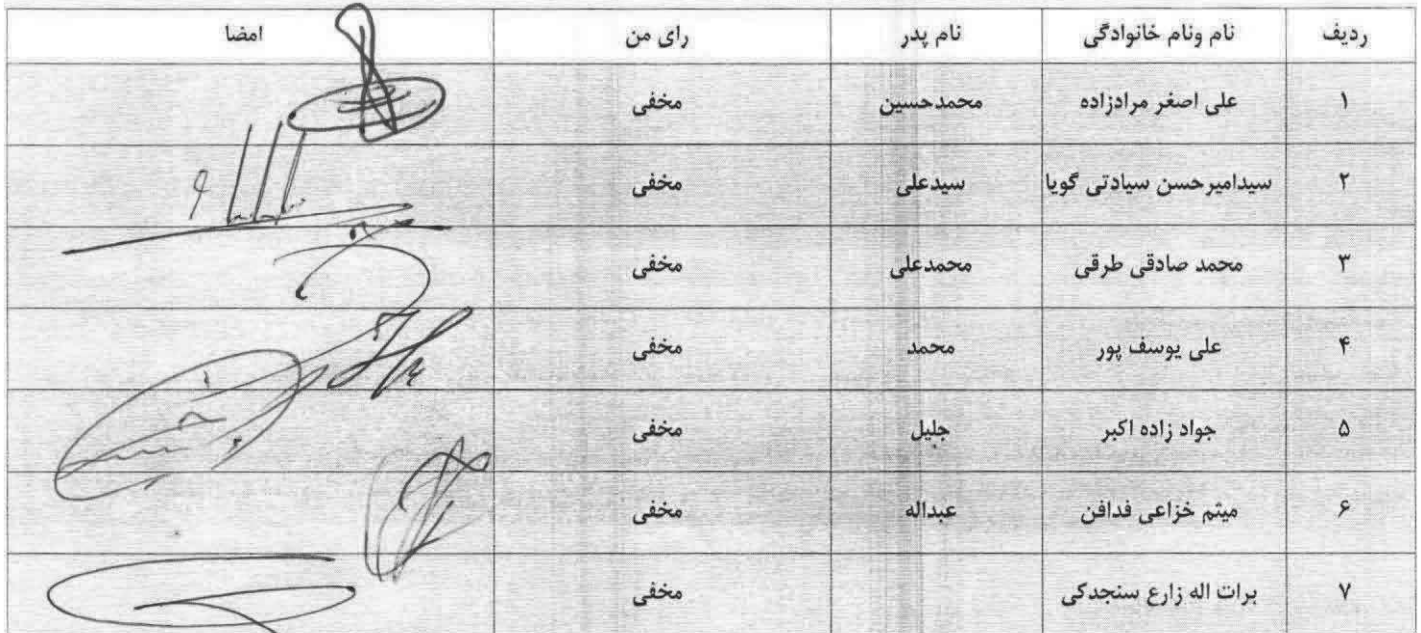 ردیف نام ونام خانوادگی نام پدر رای من امضا
۱ علی اصغر مرادزاده محمدحسین مخفی
۲ سیدامیرحسن سیادتی گویا سیدعلی مخفی
۳ محمد صادقی طرقی محمدعلی مخفی
۴ علی یوسف پور محمد مخفی
۵ جواد زاده اکبر جلیل مخفی
۶ میثم خزاعی فدافن عبداله مخفی
۷ برات اله زارع سنجدکی مخفی